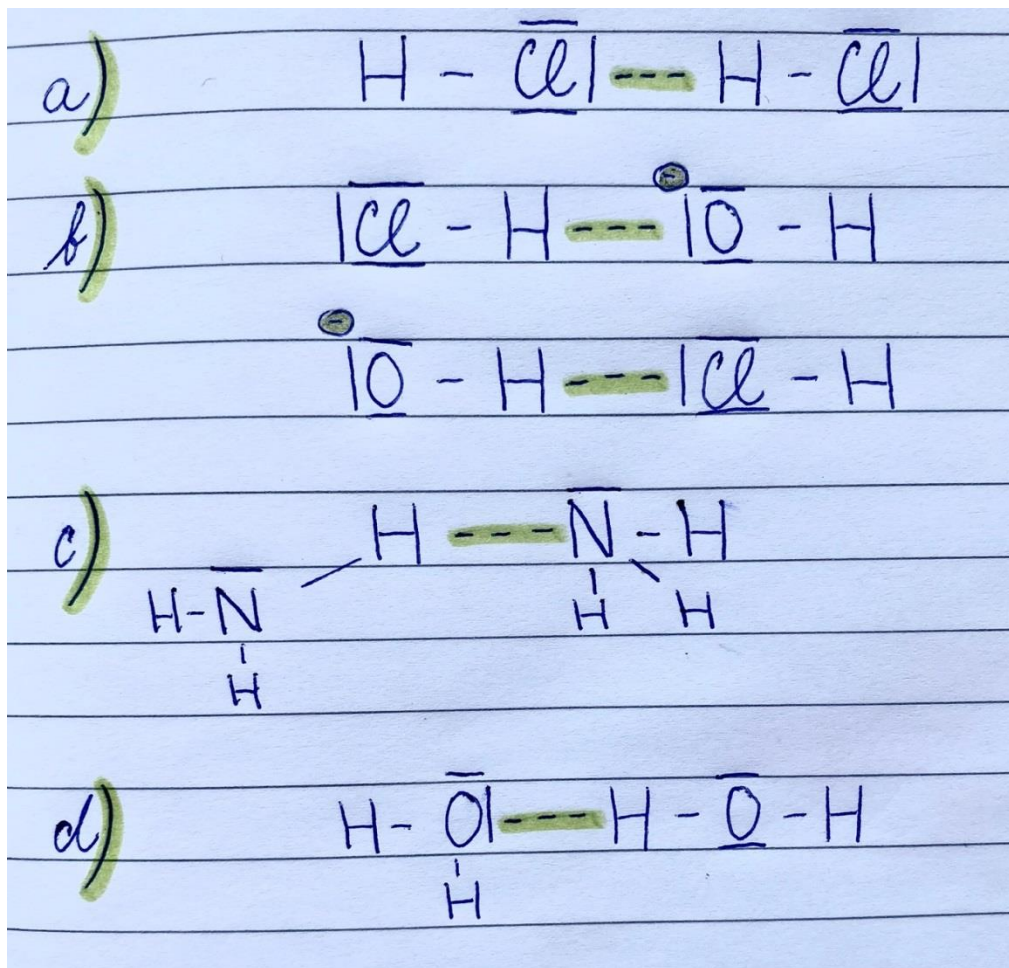 a) H - Cl| --- H - Cl|
b) |Cl - H --- ⊖|O - H
⊖|O - H --- |Cl - H
c) H --- N - H
H-N H H
H
d) H- O| --- H - O - H
H